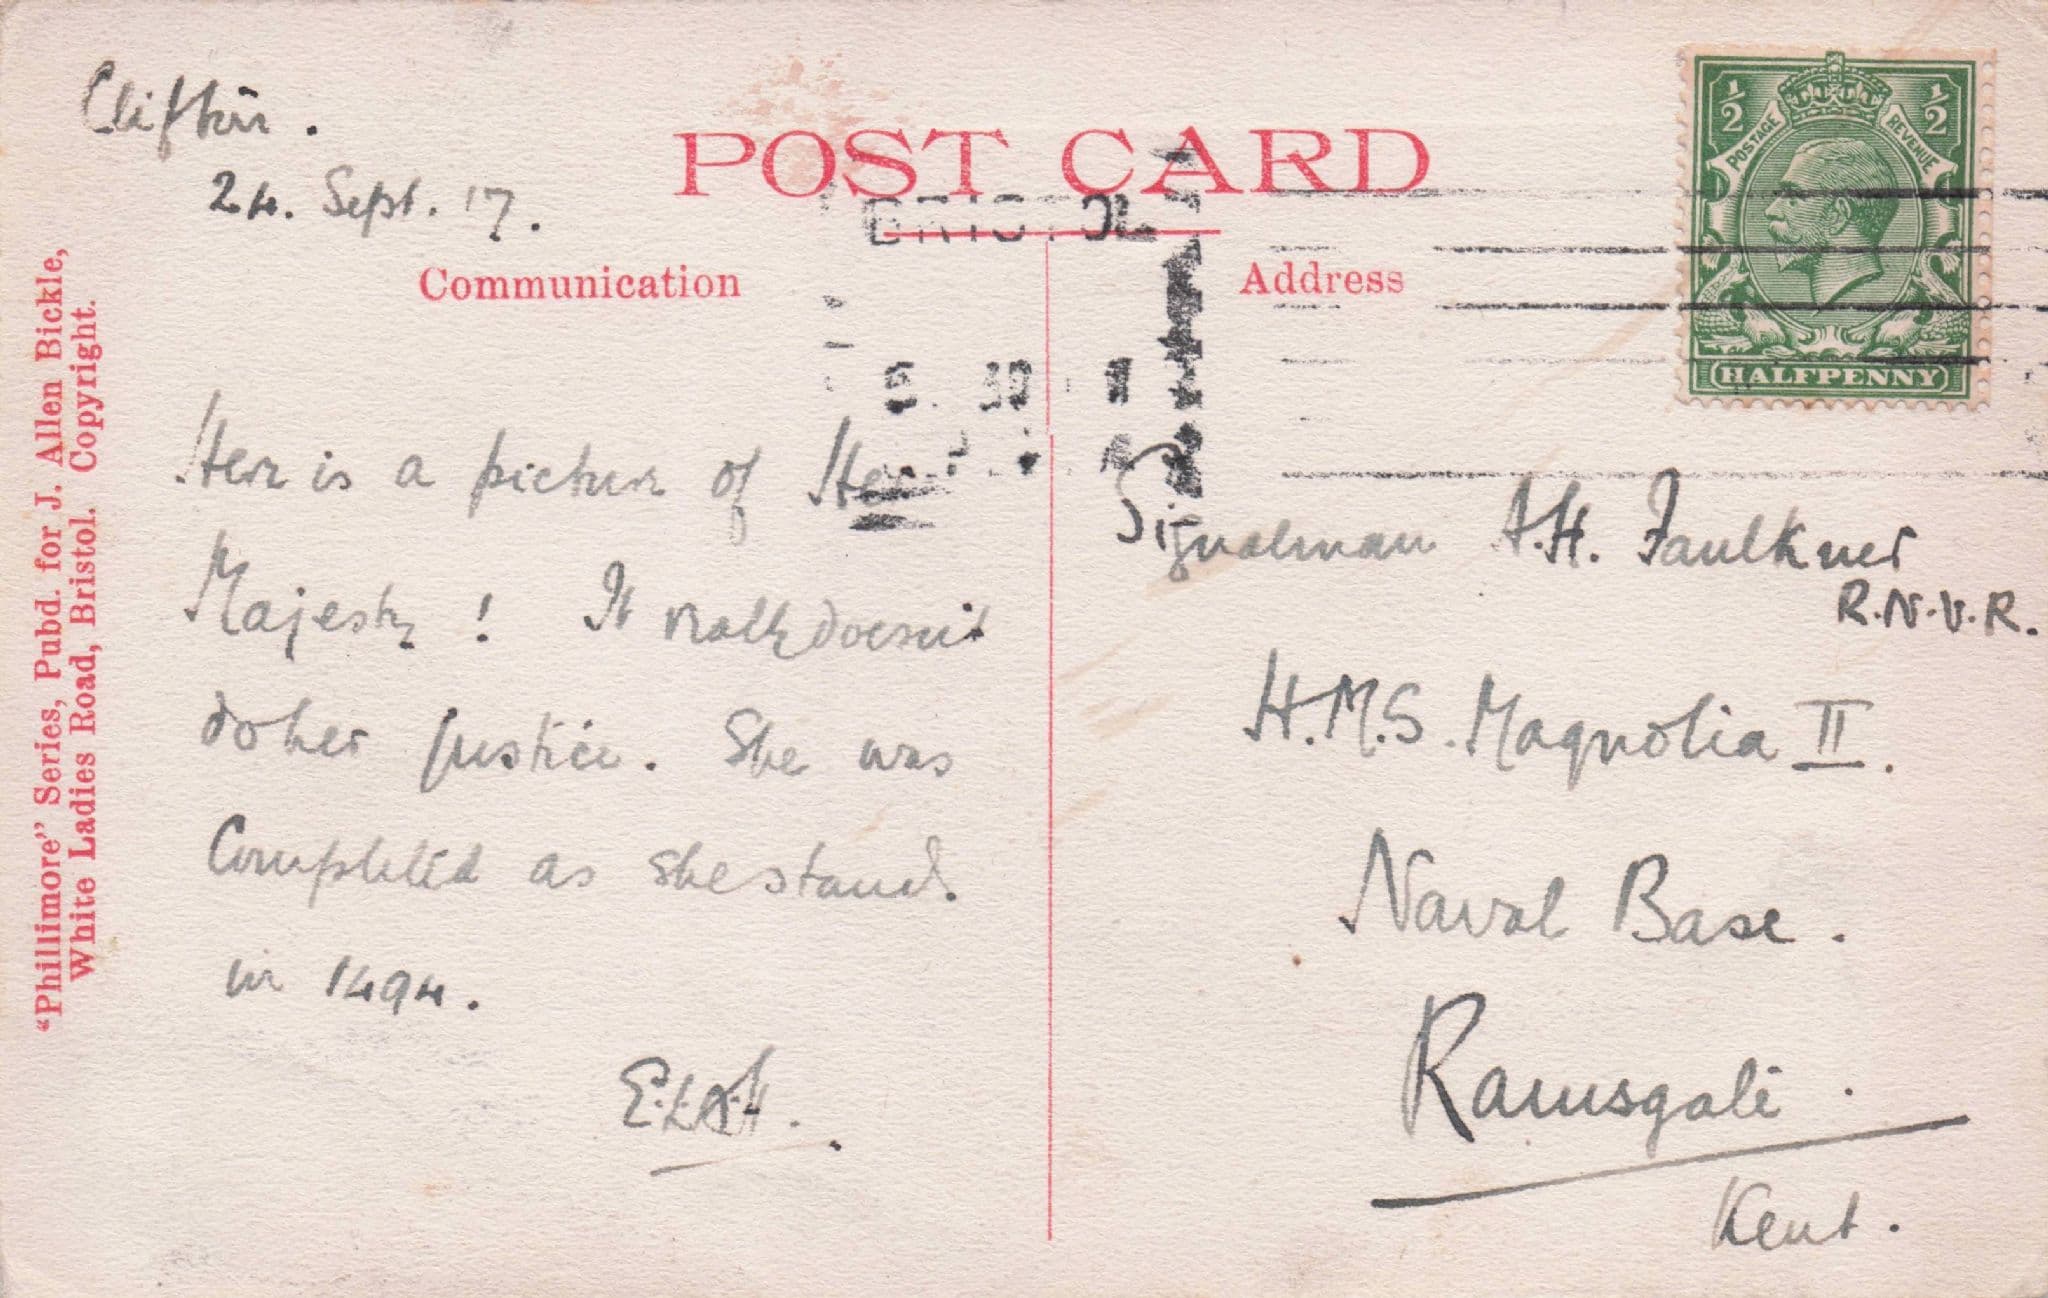 Clifton.
24. Sept. 17.
POST CARD
BRISTOL
Communication
Address
½ ½
POSTAGE REVENUE
HALFPENNY
"Phillimore" Series, Pubd. for J. Allen Bickle,
White Ladies Road, Bristol. Copyright.
Here is a picture of Her
Majesty! It really doesn't
do her justice. She was
Completed as she stands.
in 1494.
Signalman A.H. Faulkner
R.N.V.R.
H.M.S. Magnolia II.
Naval Base.
Ramsgate.
Kent.